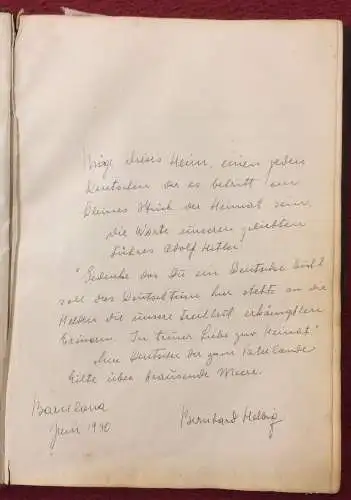 Möge dieses Heim, einen jeden
Deutschen der es betritt ein
kleines Stück der Heimat sein,
die Worte unseres geliebten
Führes Adolf Hitler!
"Gedenke das Du ein Deutscher bist
soll das Deutschtum hier stehts an die
Helden die unsere Freiheit erkämpften
Erinern. In treuer Liebe zur Heimat"
Ein Deutscher der zum Vaterlande
Eilte über brausende Meere.
Barcelona
Juni 1940
Bernhard Helbig